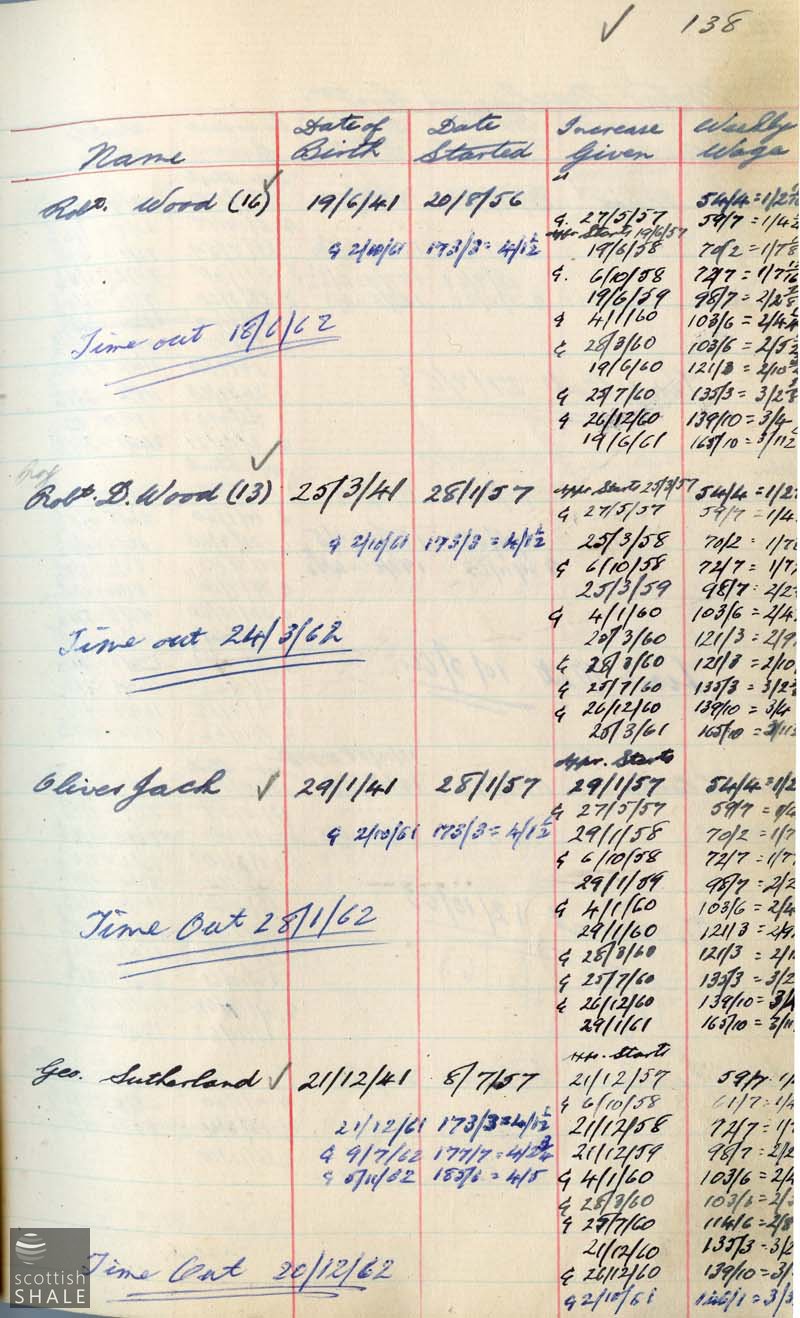 138
Name Date of Birth Date Started Increase Given Weekly Wage
Robt. Wood (16) 19/6/41 20/8/56 " 54/4 = 1/2
G. 27/5/57 59/7 = 1/4½
Appr. Starts 19/6/57
G 2/10/61 173/3 = 4/1½ 19/6/58 70/2 = 1/7
G. 6/10/58 72/7 = 1/7
19/6/59 98/7 = 2/2
G 4/1/60 103/6 = 2/4
Time out 18/6/62
G 28/3/60 103/6 = 2/5½
19/6/60 121/3 = 2/10
G 25/7/60 135/3 = 3/2
G 26/12/60 139/10 = 3/4
19/6/61 165/10 = 3/11½
Robt. D. Wood (13) 25/3/41 28/1/57 Appr. Starts 25/3/57 54/4 = 1/2
G 27/5/57 59/7 = 1/4
G 2/10/61 173/3 = 4/1½ 25/3/58 70/2 = 1/7
G 6/10/58 72/7 = 1/7
25/3/59 98/7 = 2/2
G 4/1/60 103/6 = 2/4
Time out 24/3/62 25/3/60 121/3 = 2/9
G 28/3/60 121/3 = 2/10
G 25/7/60 135/3 = 3/2
G 26/12/60 139/10 = 3/4
25/3/61 165/10 = 3/11
Appr. Starts
Oliver Jack 29/1/41 28/1/57 29/1/57 54/4 = 1/2
G 27/5/57 59/7 =
G 2/10/61 173/3 = 4/1½ 29/1/58 70/2 = 1/7
G 6/10/58 72/7 = 1/7
29/1/59 98/7 = 2/2
G 4/1/60 103/6 = 2/4
Time Out 28/1/62 29/1/60 121/3 = 2/9
G 28/3/60 121/3 = 2/1
G 25/7/60 135/3 = 3/2
G 26/12/60 139/10 = 3/4
29/1/61 165/10 = 3/11
Appr. Starts
Geo. Sutherland 21/12/41 8/7/57 21/12/57 59/7
G 6/10/58 61/7 = 1/4
21/12/61 173/3 = 4/1½ 21/12/58 72/7 = 1/7
G 9/7/62 177/7 = 4/2¾ 21/12/59 98/7 = 2/2
G 5/11/62 185/6 = 4/5 G 4/1/60 103/6 = 2/4
G 28/3/60 103/6 = 2/5
G 25/7/60 114/6 = 2/8
21/12/60 135/3 = 3/2
Time Out 20/12/62 G 26/12/60 139/10 = 3/
G 2/10/61 146/1 = 3/
scottish
SHALE